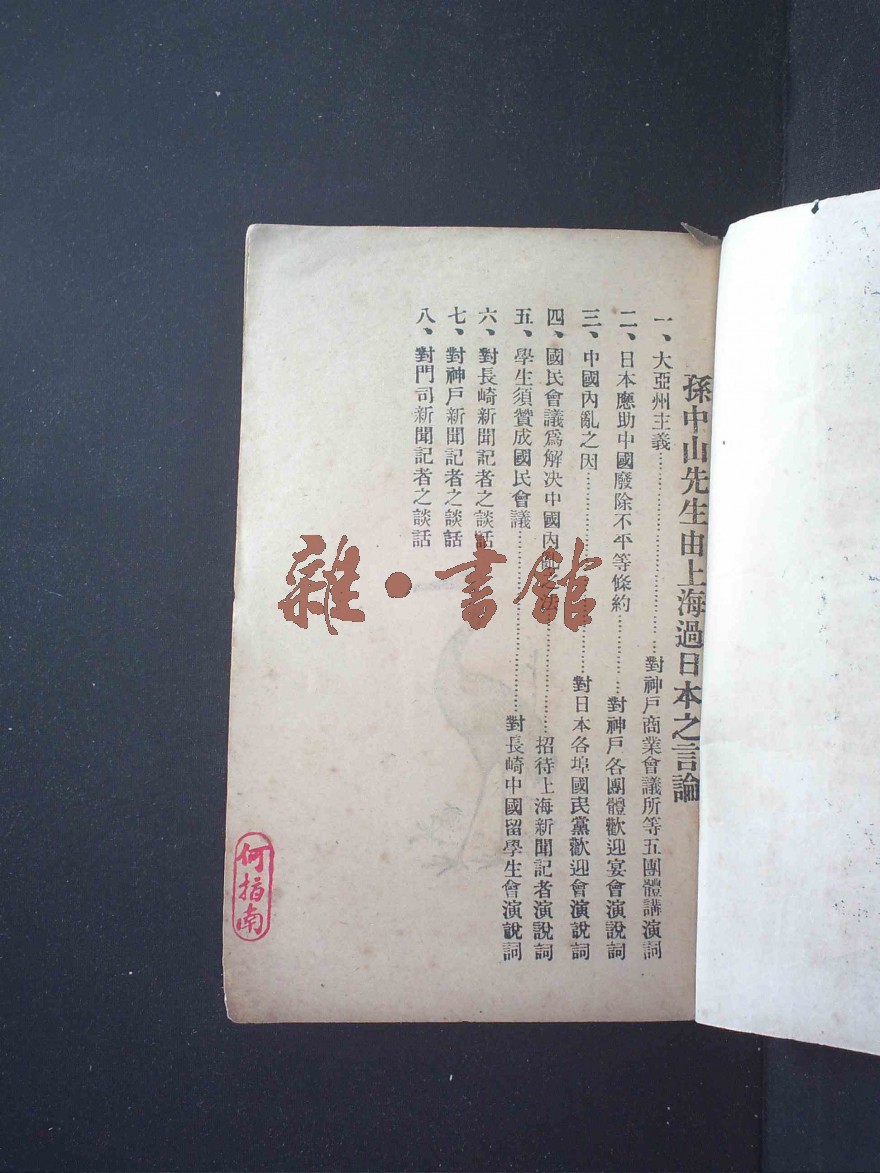 孫中山先生由上海過日本之言論
一、大亞州主義……對神戶商業會議所等五團體講演詞
二、日本應助中國廢除不平等條約……對神戶各團體歡迎宴會演說詞
三、中國內亂之因……對日本各埠國民黨歡迎會演說詞
四、國民會議爲解決中國內亂之法……招待上海新聞記者演說詞
五、學生須贊成國民會議……對長崎中國留學生會演說詞
六、對長崎新聞記者之談話
七、對神戶新聞記者之談話
八、對門司新聞記者之談話
雜•書館
何指南